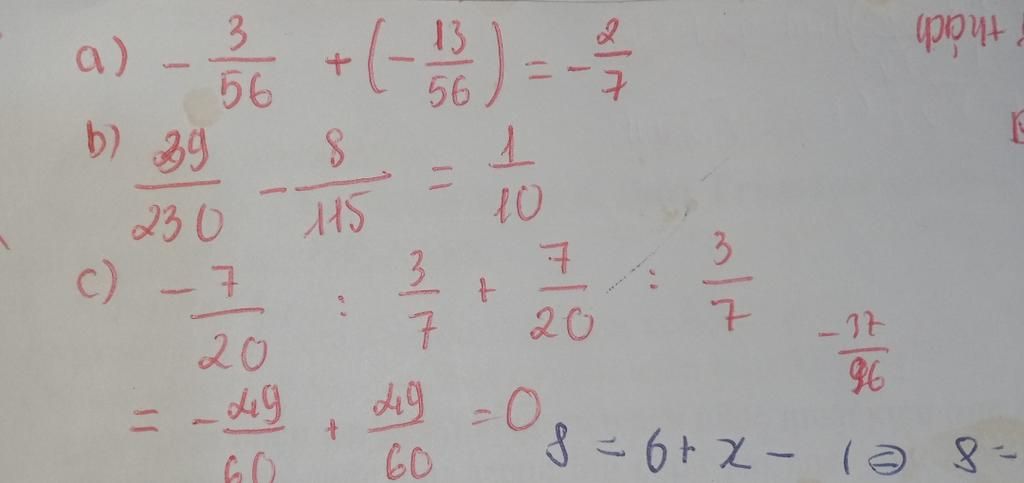 a) - 3/56 + (- 13/56) = - 2/7
b) 39/230 - 8/115 = 1/10
c) - 7/20 : 3/7 + 7/20 : 3/7
= - 49/60 + 49/60 = 0
-37/96
8 = 6 + x - 1 ⇔ 8 =
thách